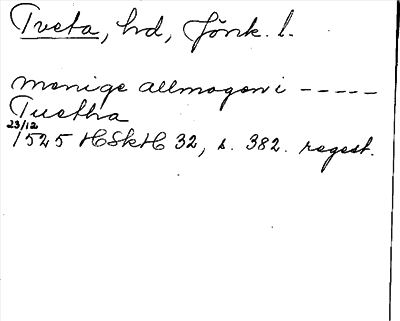 Tveta, hd, Jönk. l.
menige allmogen i -----
Tuetha
23/12
1525 HSkH 32, s. 382. regest.